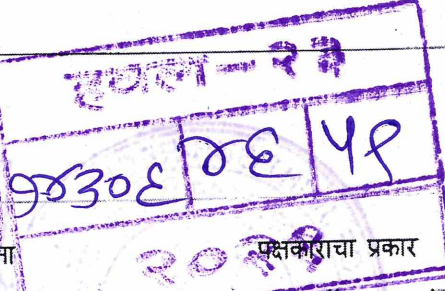 हवल - २३
१४३०६ ४६ ५१
२०
पक्षकाराचा प्रकार